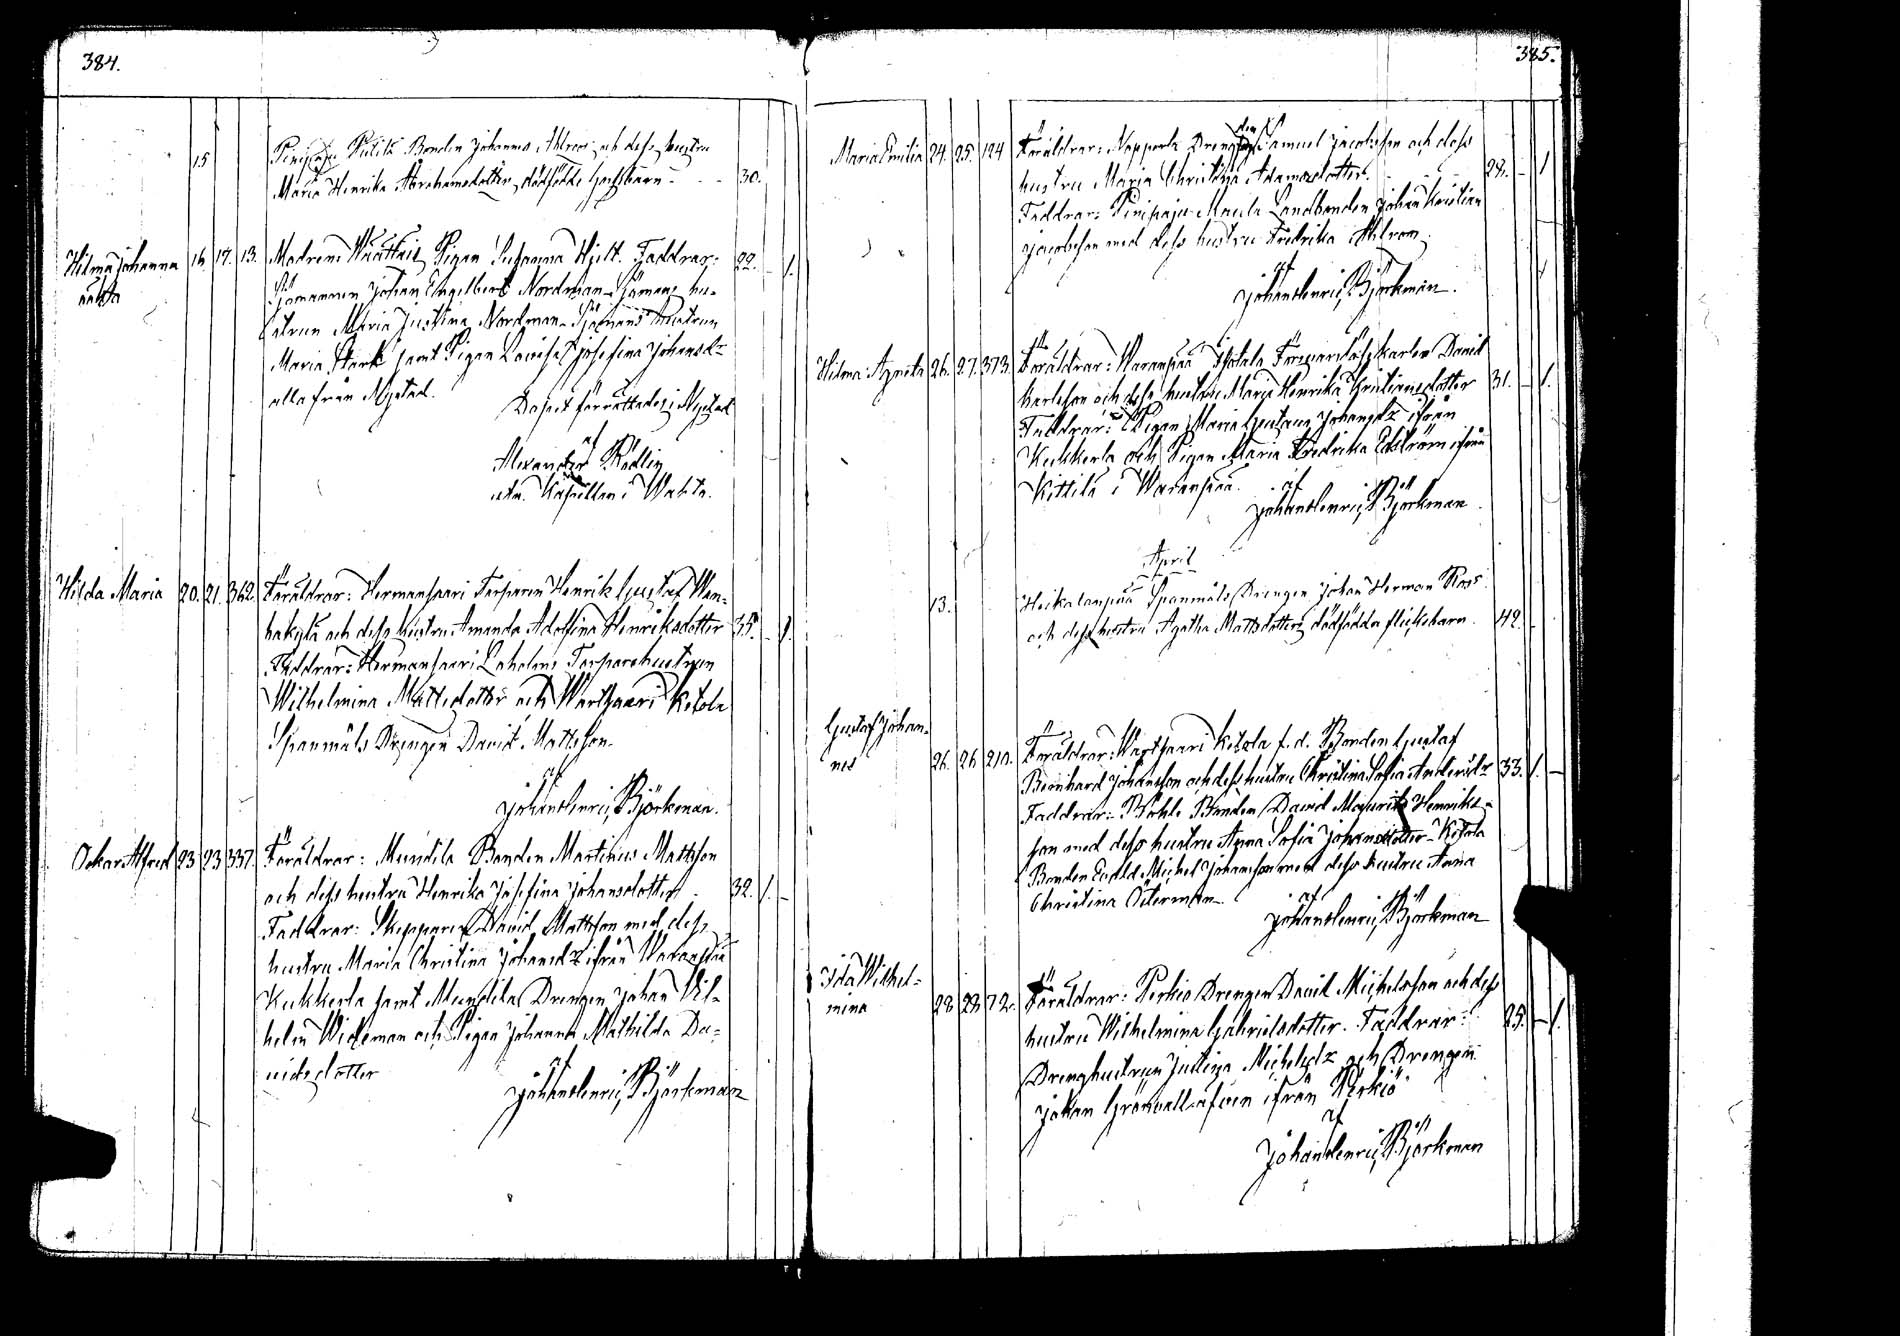 384.
15 Pinipaju Bonden Johannes Ahlroos och dess hustru
Maria Henrika Abrahamsdotter, dödfödde Gossebarn 30.
Hilma Johanna 16. 17. 13. Modren: Pigan Susanna Hjelt. Faddrar: 22. 1.
oäkta Sjömannen Johan Engelbert Nordman, Sjömans hu-
strun Maria Justina Nordman, Sjömans hustrun
Maria Stark samt Pigan Lovisa Josefina Johansdr
alla från Nystad. Dopet förrättades i Nystad
af
Alexander Rödlin
Kapellan i
Hilda Maria 20. 21. 362. Föräldrar: Hermansaari Torparen Henrik Gustaf Wan-
hakylä och dess hustru Amanda Adolfina Henriksdotter 35. 1.
Faddrar: Hermansaari Laholms Torparehustrun
Wilhelmina Mattsdotter och Wartsaari Ketola
Spanmåls Drengen David Mattsson.
af
Johan Henric Björkman.
Oskar Alfred 23 23 337. Föräldrar: Mundila Bonden Martinus Mattsson
och dess hustru Henrika Josefina Johansdotter. 32. 1. –
Faddrar: Skepparen David Mattsson med dess
hustru Maria Christina Johansdr ifrån Waranpää
Kukkerla samt Mundila Drengen Johan Vil-
helm Wideman och Pigan Johanna Mathilda Da-
vidsdotter
af
Johan Henric Björkman
385.
Maria Emilia 24. 25. 124 Föräldrar: Napperla Drengen Samuel Jacobsson och dess
hustru Maria Christina Adamsdotter. 28. – 1
Faddrar: Pinipaju Landbonden Johan Kristian
Jacobsson med dess hustru Fredrika Ahlroos.
af
Johan Henric Björkman.
Hilma Agneta 26. 27. 373. Föräldrar: Waranpää Försvarslöskarlen David
Karlsson och dess hustru Maria Henrika Kristiansdotter 31. – 1.
Faddrar: Pigan Maria Gustava Johansdr ifrån
Kukkerla och Pigan Maria Fredrika Edström ifrån
Kittilä i Waranpää. af
Johan Henric Björkman
April
13. Heikalanpää Spanmåls Drengen Johan Herman Roos
och dess hustru Agatha Mattsdotters dödfödda flickebarn. 42.
Gustaf Johan-
nes 26. 26 210. Föräldrar: Wartsaari Ketola f.d. Bonden Gustaf
Bernhard Johansson och dess hustru Christina Sofia Andersdr 33. 1. –
Faddrar: Bonden David Mauritz Henriks-
son med dess hustru Anna Sofia Johansdotter – Ketola
Bonden Evald Michel Johansson med dess hustru Anna
Christina Österman.
af
Johan Henric Björkman
Ida Wilhel-
mina 28 28 72. Föräldrar: Perkiö Drengen David Michelsson och dess
hustru Wilhelmina Gabrielsdotter. Faddrar: 25. – 1.
Drenghustrun Justina Michelsdr och Drengen
Johan Grönvall äfven ifrån Perkiö
af
Johan Henric Björkman